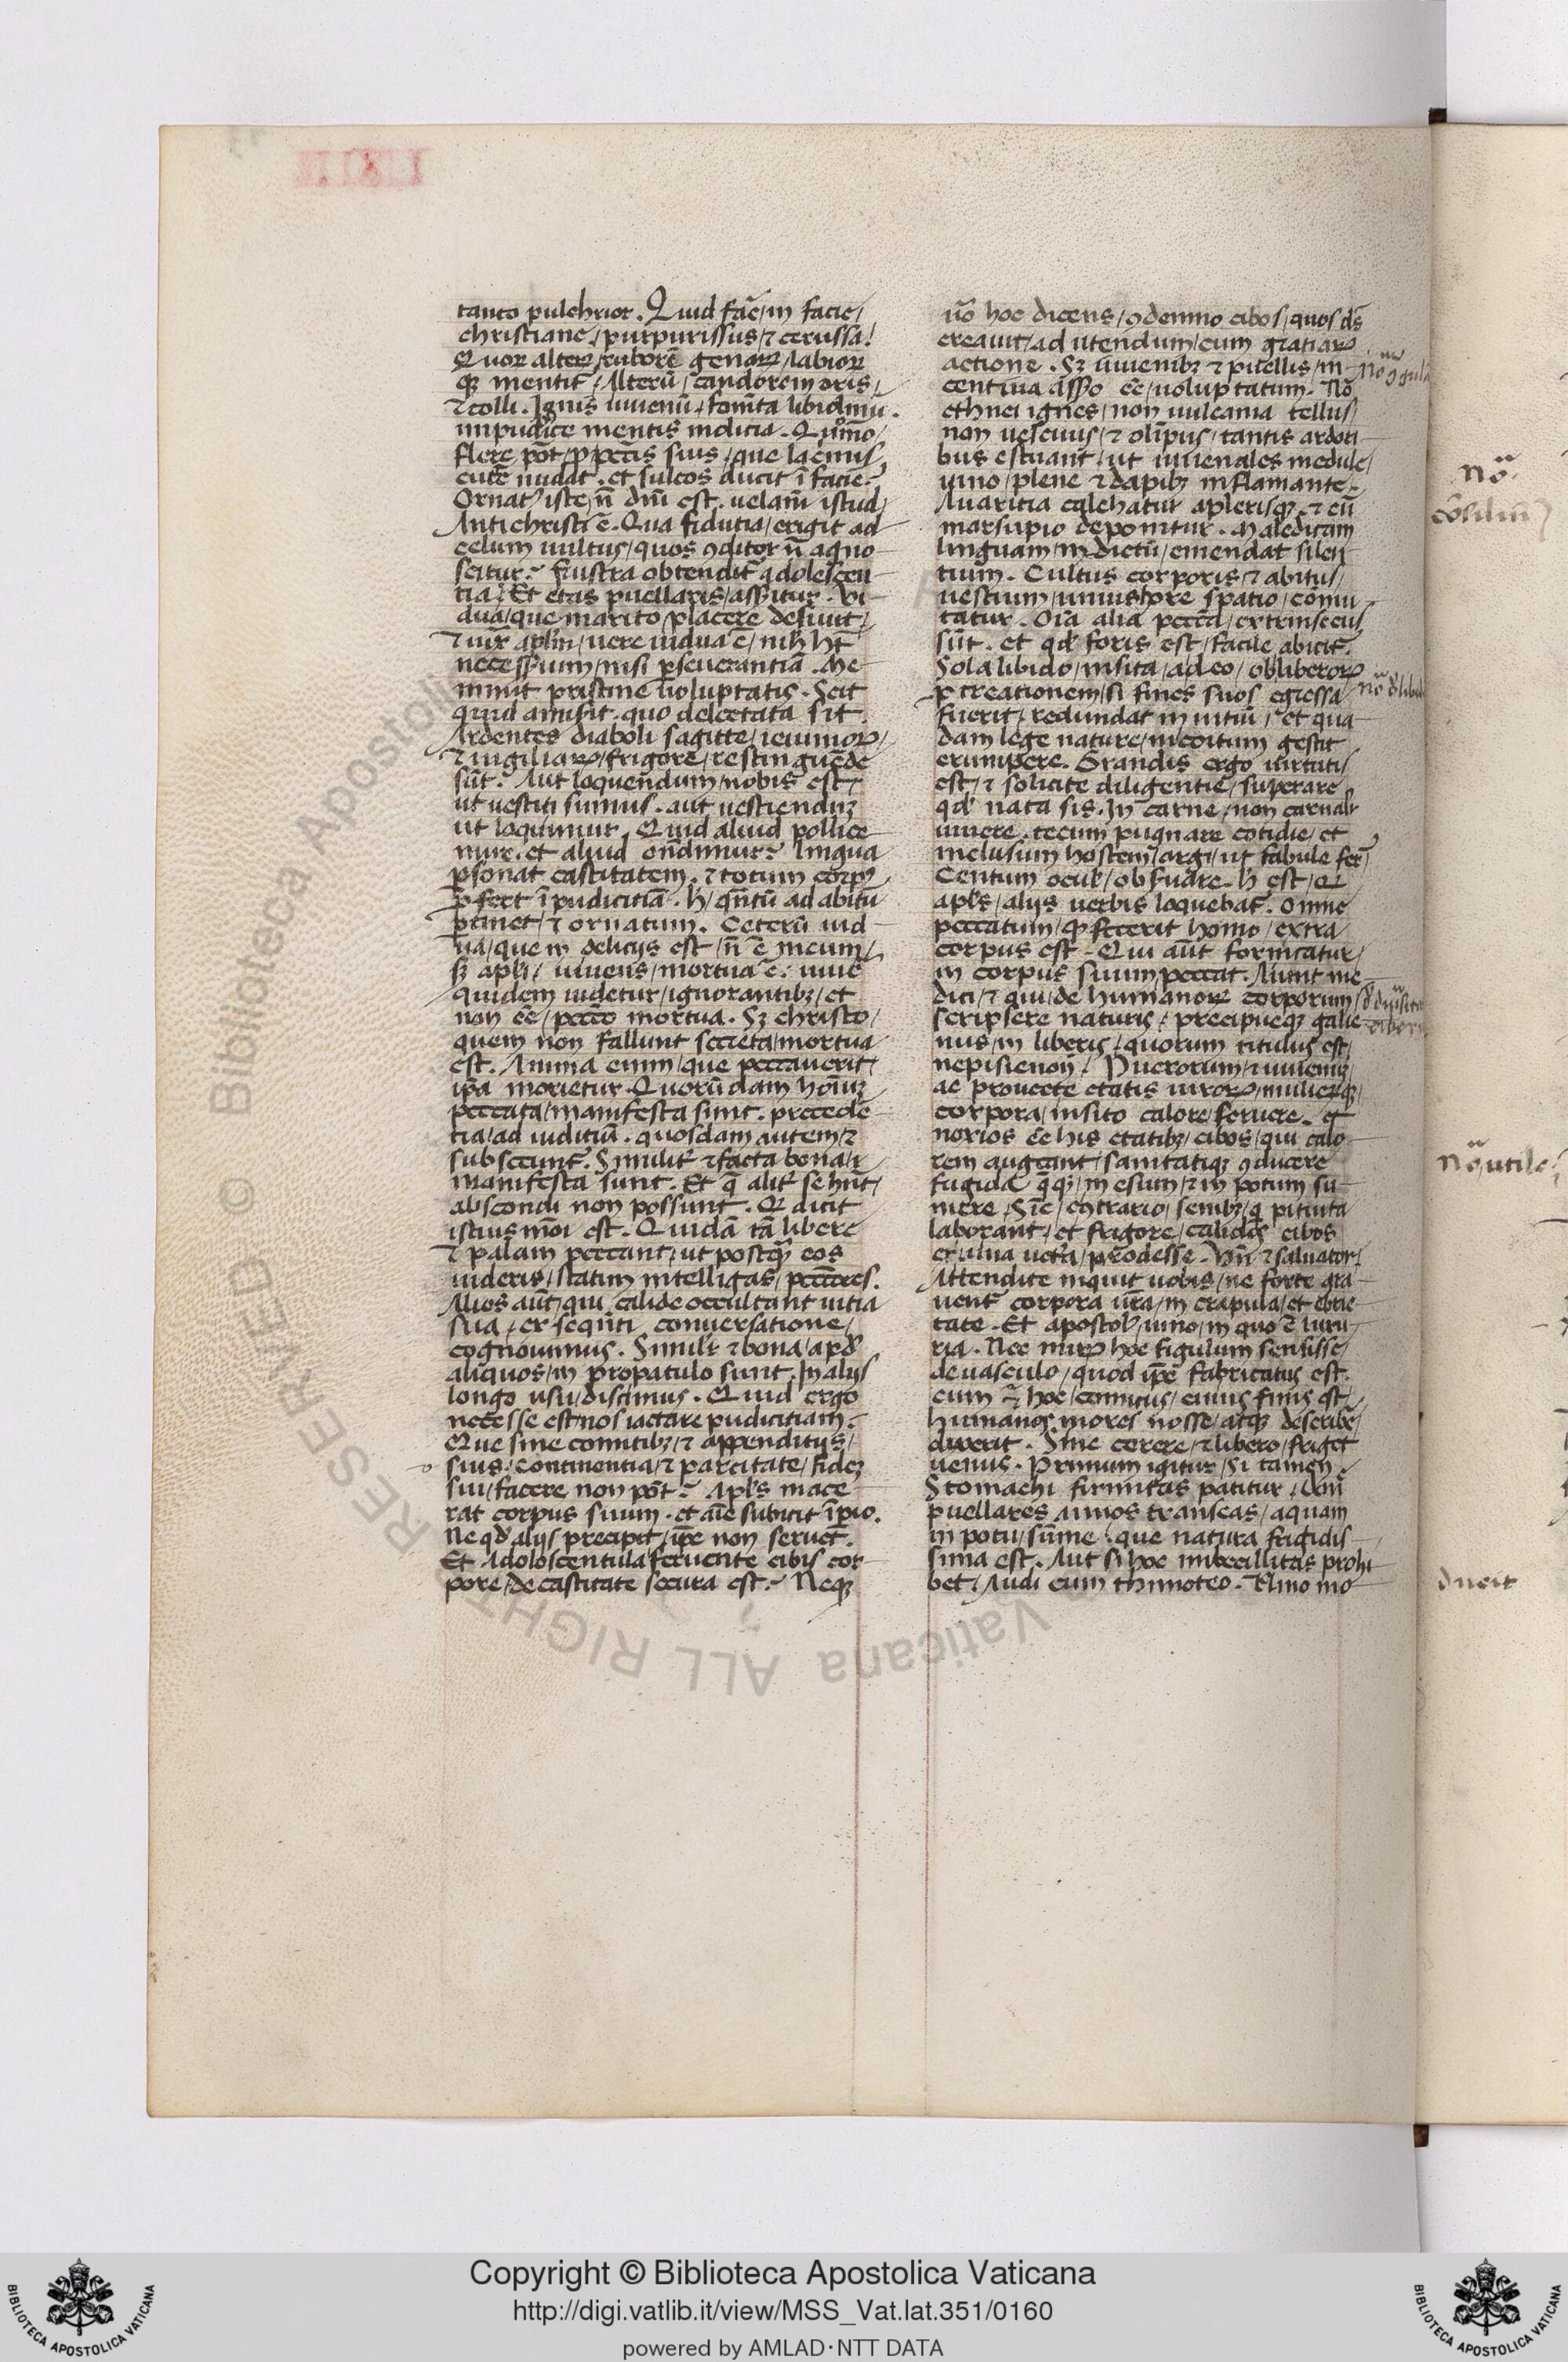 tanto pulchrior. Quid fac̄ / in facie /
christiane / purpurissus / ⁊ cerussa!
Quoꝝ alteꝝ / ruborē genaꝝ / labioꝝ
qꝫ mentit᷑ / Alterū / candorem oris /
⁊ colli. Ignis iuuenū / fom̄ta libidinū.
impudice mentis indicia. Quō
flere pōt / ꝓ pctīs suis / que lacrimis
cutē nudat. et sulcos ducit ī facie?
Ornatꝰ iste / n̄ dnī est. uelam̄ istud /
Antichristi ē. Qua fiducia / erigit ad
celum uultus / quos ꝯditor n̄ agno
scitur? frustra obtendit᷑ adolescen
tia. Et etas puellaris / asserit᷑. Vi
dua / que marito / placere desiuit /
necessarium / nisi ꝑseuerantiā. Me
minit pristine uoluptatis. Scit
quid amisit. quo delectata sit.
Ardentes diaboli sagitte / ieiunioꝝ /
⁊ uigiliaꝝ / frigore / restinguēde
sūt. Aut loquendum / nobis est /
ut uestiti sumus. aut uestienduꝫ
ut loquimur. Quid aliud pollice
mur. et aliud ondimur? lingua
ꝑsonat castitatem. ⁊ totum corpꝰ
p̄fert īpudicitiā. h̄ / qn̄tū ad abitū
ꝑtinet / ⁊ ornatum. Ceterū uid
ua / que in deliciis est / n̄ ē meum /
sꝫ apl̄i / uiuens / mortua ē.
quidem uidetur / ignorantibꝫ / et
non eē / peccto mortua. Sꝫ christo /
quem non fallunt secreta / mortua
est. Anima enim / que peccauerit /
ip̄a morietur. Quorūdam hōiuꝫ
peccata / manifesta sunt. precedē
tia / ad iuditiū. quosdam autem / ⁊
subsecunt᷑. Similit᷑ ⁊ facta bona /
manifesta sunt. Et q̄ alit᷑ se hn̄t /
abscondi non possunt. Qd̄ dicit
istius mōi est. Quidā tā libere
⁊ palam peccant / ut postq̄ eos
uideris / statim intelligas / peccōres.
Alios aūt / qui calide occultant uitia
sua / ex seqn̄ti conuersatione /
cognouimus. Similr̄ ⁊ bona / apd̄
aliquos / in propatulo sunt. In alijs
longo usu / discimus. Quid ergo
necesse est nos iactare pudicitiam?
Que sine comitibꝫ / ⁊ appenditijs /
suis / continentia / ⁊ parcitate / fideꝫ
sui / facere non pōt? Apl̄s mace
rat corpus suum. et aīe subicit īpio.
Ne qd̄ alijs precipit / ip̄e non seruet.
Et Adoloscentula feruente cibis cor
pore / de castitate secura est? Neqꝫ
uō hoc dicens / ꝯdemno cibos / quos ds̄
creauit / ad utendum / cum gratiaꝝ
actione. Sꝫ iuuenibꝫ ⁊ puellis / in
centiua assero eē / uoluptatum. Nō
ethnei ignes / non uulcania tellus /
non uesuuius / ⁊ olīpus / tantis ardori
bus estuant / ut iuuenales medule /
uino / plene ⁊ dapibꝫ inflamante.
Auaritia calchatur a plerisqꝫ / ⁊ cū
marsupio deponitur. Maledicam
linguam / indictū / emendat silen
tium. Cultus corporis / ⁊ abitus /
uestium / unius hore spatio / comu
tatur. Oīa alia peccā / extrinsecus
sūt. et qd̄ foris est / facile abicit᷑.
Sola libido / insita / a deo / ob liberoꝝ
ꝓcreationem / si fines suos egressa
fuerit / redundat in uitiū / et qua
dam lege nature / in coitum gestit
erumpere. Grandis ergo uirtutis
est / ⁊ solicite diligentie / superare
qd̄ nata sis. In carne / non carnalr̄
uiuere. tecum pugnare cotidie / et
inclusum hostem / argi / ut fabule fer̄
Centum oculis / obseruare. h̄ est / qd̄
apl̄s / alijs uerbis loquebat᷑. Omne
peccatum / qd̄ fecerit homo / extra
corpus est. Qui aūt fornicatur /
in corpus suum / peccat. Aiunt me
dici / ⁊ qui / de humanoꝝ corporum /
scripsere naturis / precipueqꝫ galie
nus / in liberis / quorum titulus est /
nepisienon̄. Puerorum / ⁊ iuuenuꝫ /
ac prouecte etatis uiroꝝ / mulieꝝqꝫ /
corpora / insito calore / feruere. et
noxios eē his etatibꝫ / cibos / qui calo
rem augeant / sanitatiqꝫ ꝯducere
frigida q̄qꝫ / in esum / ⁊ in potum su
mere. Sic / ꝯtrario / senibꝫ / q̄ pituita
laborant / et frigore / calidos cibos
et uina uet᷑a / prodesse. Vn̄ ⁊ saluator /
Attendite inquit uobis / ne forte gra
uent᷑ corpora ur̄a / in crapula / et ebrie
tate. Et apostol᷑ / uino / in quo ē luxu
ria. Nec miꝝ hoc figulum sensisse /
de uasculo / quod ip̄e fabricatus est.
cum ⁊ hoc / comicus / cuius finis est /
humanos mores nosse / atqꝫ describē /
dixerit. Sine cerere / ⁊ libero / friget
uenus. Primum igitur / Si tamen
Stomachi firmitas patitur / don̄
puellares annos transeas / aquam
in potū / sūme / que natura frigidis
sima est. Aut si hoc imbecillitas prohi
bet / Audi cum thimoteo. Vino mo
nō
ꝯsiliū
nō utile
ducit
Copyright © Biblioteca Apostolica Vaticana
http://digi.vatlib.it/view/MSS_Vat.lat.351/0160
powered by AMLAD·NTT DATA
BIBLIOTECA APOSTOLICA VATICANA
BIBLIOTECA APOSTOLICA VATICANA